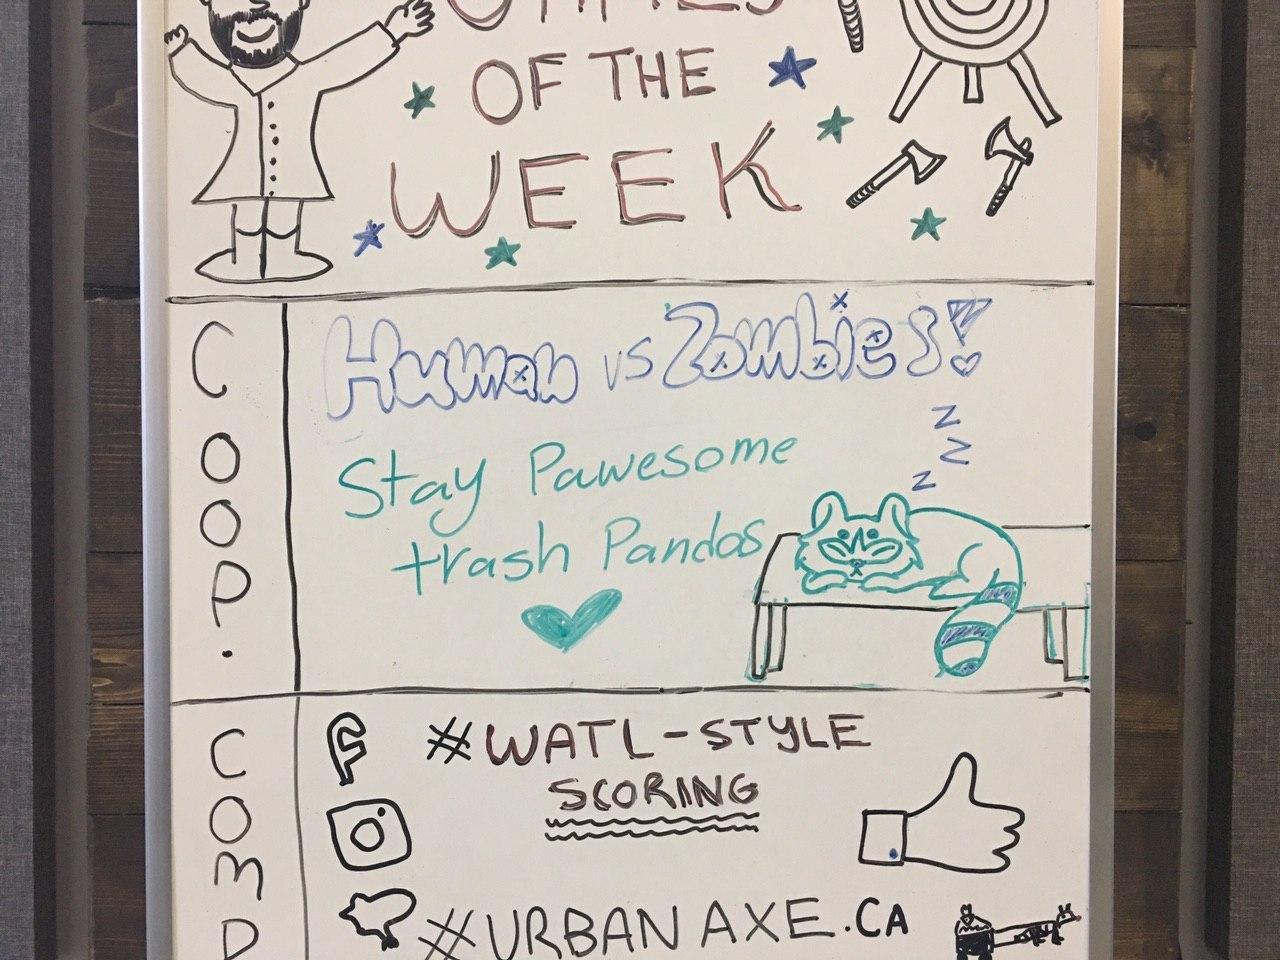 GAMES
OF THE
WEEK
COOP.
Human vs Zombies!
z
z
z
Stay Pawesome
trash Pandas
COMP
#WATL-STYLE
SCORING
#URBAN AXE.CA